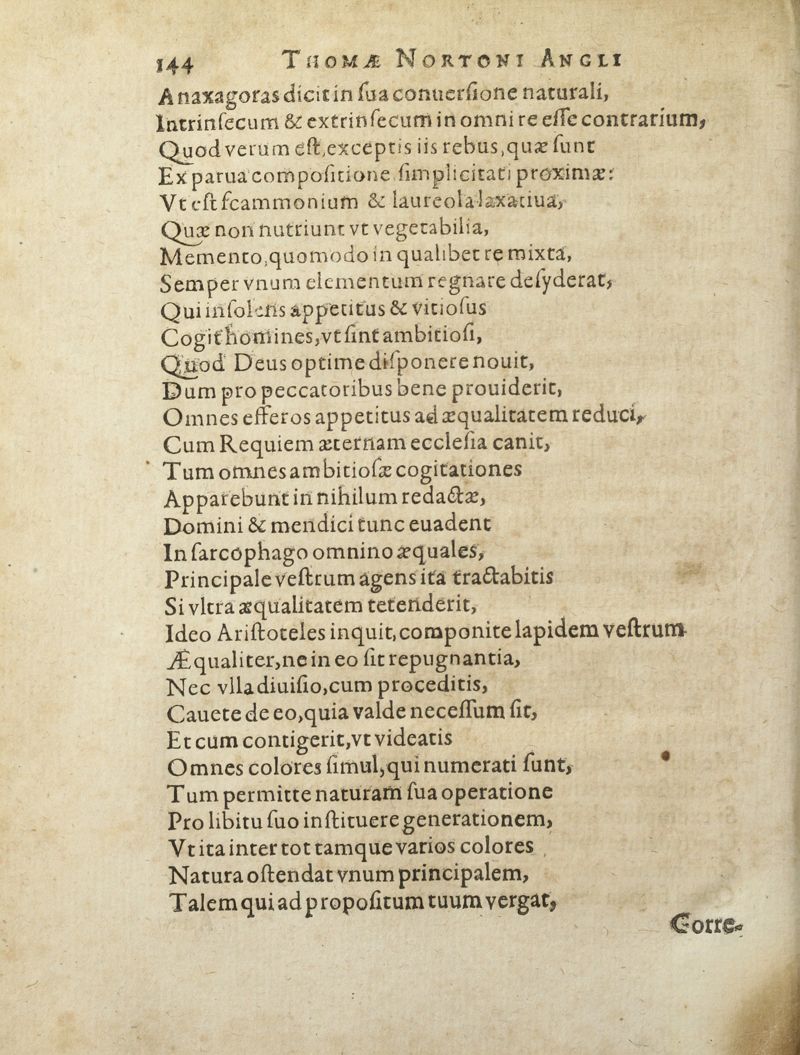 144 THOMÆ NORTONI ANGLI
Anaxagoras dicit in ſua conuerſione naturali,
Intrinſecum & extrinſecum in omni re eſſe contrarium,
Quod verum eſt, exceptis iis rebus, quæ ſunt
Ex parua compoſitione ſimplicitati proximæ:
Vt eſt ſcammonium & laureola laxatiua,
Quæ non nutriunt vt vegetabilia,
Memento, quomodo in qualibet re mixta,
Semper vnum elementum regnare deſyderat,
Qui inſolens appetitus & vitioſus
Cogit homines, vt ſint ambitioſi,
Quod Deus optime diſponere nouit,
Dum pro peccatoribus bene prouiderit,
Omnes efferos appetitus ad æqualitatem reduci,
Cum Requiem æternam eccleſia canit,
Tum omnes ambitioſæ cogitationes
Apparebunt in nihilum redactæ,
Domini & mendici tunc euadent
In ſarcophago omnino æquales,
Principale veſtrum agens ita tractabitis
Si vltra æqualitatem tetenderit,
Ideo Ariſtoteles inquit, componite lapidem veſtrum
Æqualiter, ne in eo ſit repugnantia,
Nec vlla diuiſio, cum proceditis,
Cauete de eo, quia valde neceſſum ſit,
Et cum contigerit, vt videatis
Omnes colores ſimul, qui numerati ſunt,
Tum permitte naturam ſua operatione
Pro libitu ſuo inſtituere generationem,
Vt ita inter tot tamque varios colores
Natura oſtendat vnum principalem,
Talem qui ad propoſitum tuum vergat,
Corre-